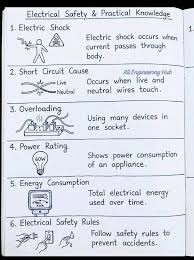 Electrical Safety & Practical Knowledge
1. Electric Shock
Electric shock occurs when
current passes through
body.
2. Short Circuit Cause
All Engineering Hub
Live
Neutral
Occurs when live and
neutral wires touch.
3. Overloading
Using many devices in
one socket.
4. Power Rating
60W
Shows power consumption
of an appliance.
5. Energy Consumption
Total electrical energy
used over time.
6. Electrical Safety Rules
Follow safety rules to
prevent accidents.